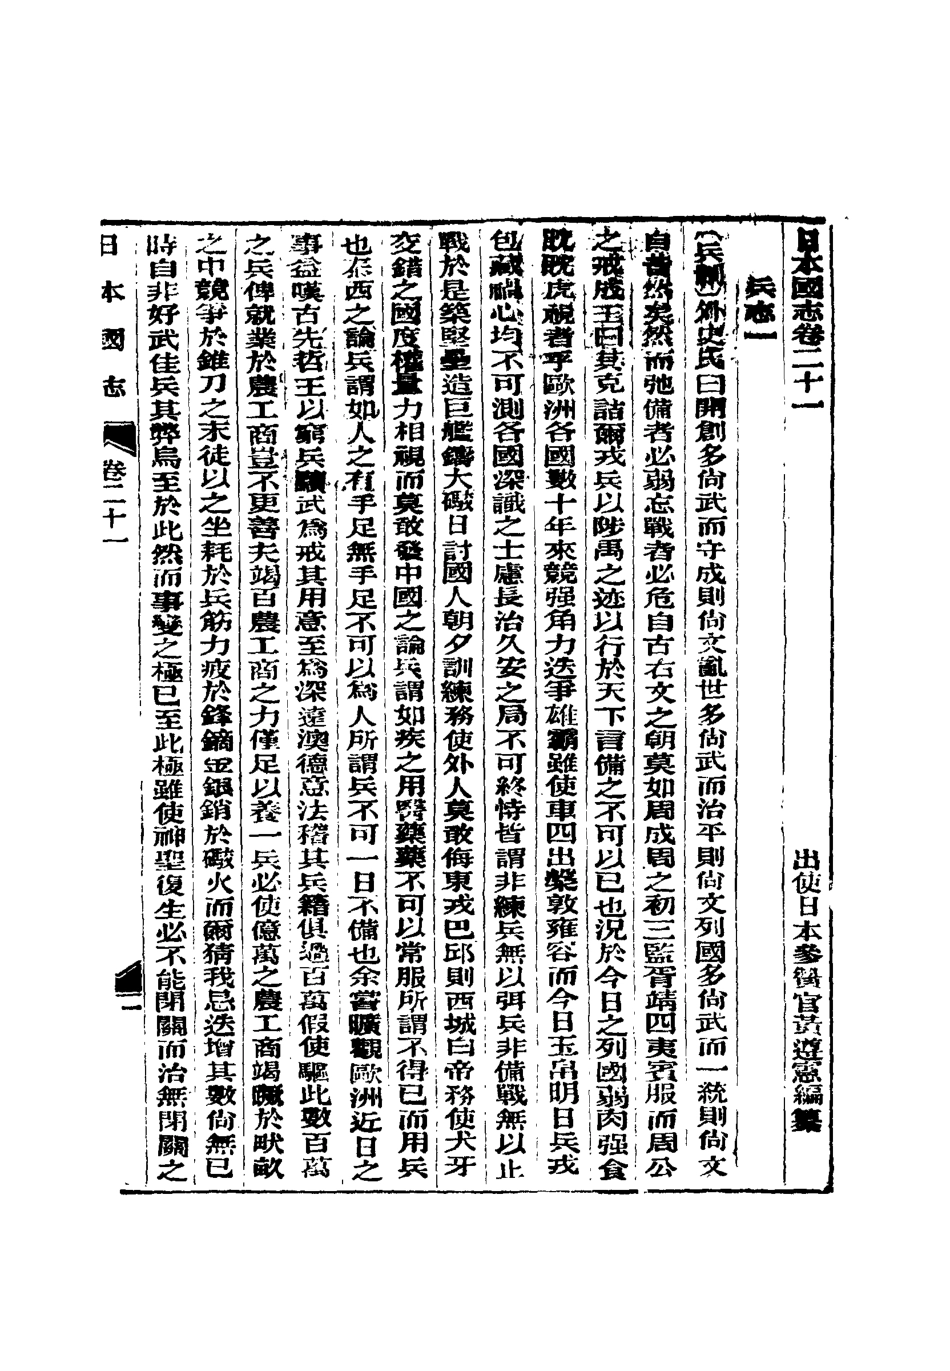 日本國志卷二十一
出使日本參贊官黃遵憲編纂
兵志一
〔兵制〕外史氏曰開創多尙武而守成則尙文亂世多尙武而治平則尙文列國多尙武而一統則尙文
自昔然矣然而弛備者必弱忘戰者必危自古右文之朝莫如周成周之初三監胥靖四夷賓服而周公
之戒成王曰其克詰爾戎兵以陟禹之迹以行於天下言備之不可以已也況於今日之列國弱肉强食
眈眈虎視者乎歐洲各國數十年來競强角力迭爭雄霸雖使車四出槃敦雍容而今日玉帛明日兵戎
包藏禍心均不可測各國深識之士慮長治久安之局不可終恃皆謂非練兵無以弭兵非備戰無以止
戰於是築堅壘造巨艦鑄大礮日討國人朝夕訓練務使外人莫敢侮東戎巴邱則西城白帝務使犬牙
交錯之國度權量力相視而莫敢發中國之論兵謂如疾之用醫藥藥不可以常服所謂不得已而用兵
也泰西之論兵謂如人之有手足無手足不可以爲人所謂兵不可一日不備也余嘗曠觀歐洲近日之
事益嘆古先哲王以窮兵黷武爲戒其用意至爲深遠澳德意法稽其兵籍俱過百萬假使驅此數百萬
之兵俾就業於農工商豈不更善夫竭百農工商之力僅足以養一兵必使億萬之農工商竭蹶於畎畝
之中競爭於錐刀之末徒以之坐耗於兵筋力疲於鋒鏑金銀銷於礮火而爾猜我忌迭增其數尙無已
時自非好武佳兵其弊烏至於此然而事變之極已至此極雖使神聖復生必不能閉關而治無閉關之
日本國志
卷二十一
一